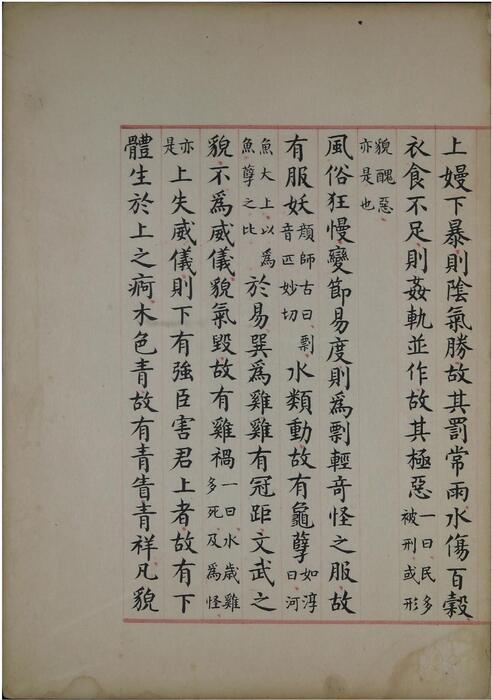 上嫚下暴則陰氣勝故其罰常雨水傷百穀
衣食不足則姦軌並作故其極惡一曰民多被刑或形
貌醜惡亦是也
風俗狂慢變節易度則爲剽輕奇怪之服故
有服妖顏師古曰剽音匹妙切水類動故有龜孽如淳曰河
魚大上以爲魚孽之比於易巽爲雞雞有冠距文武之
貌不爲威儀貌氣毀故有雞禍一曰水歲雞多死及爲怪
亦是上失威儀則下有強臣害君上者故有下
體生於上之痾木色青故有青眚青祥凡貌